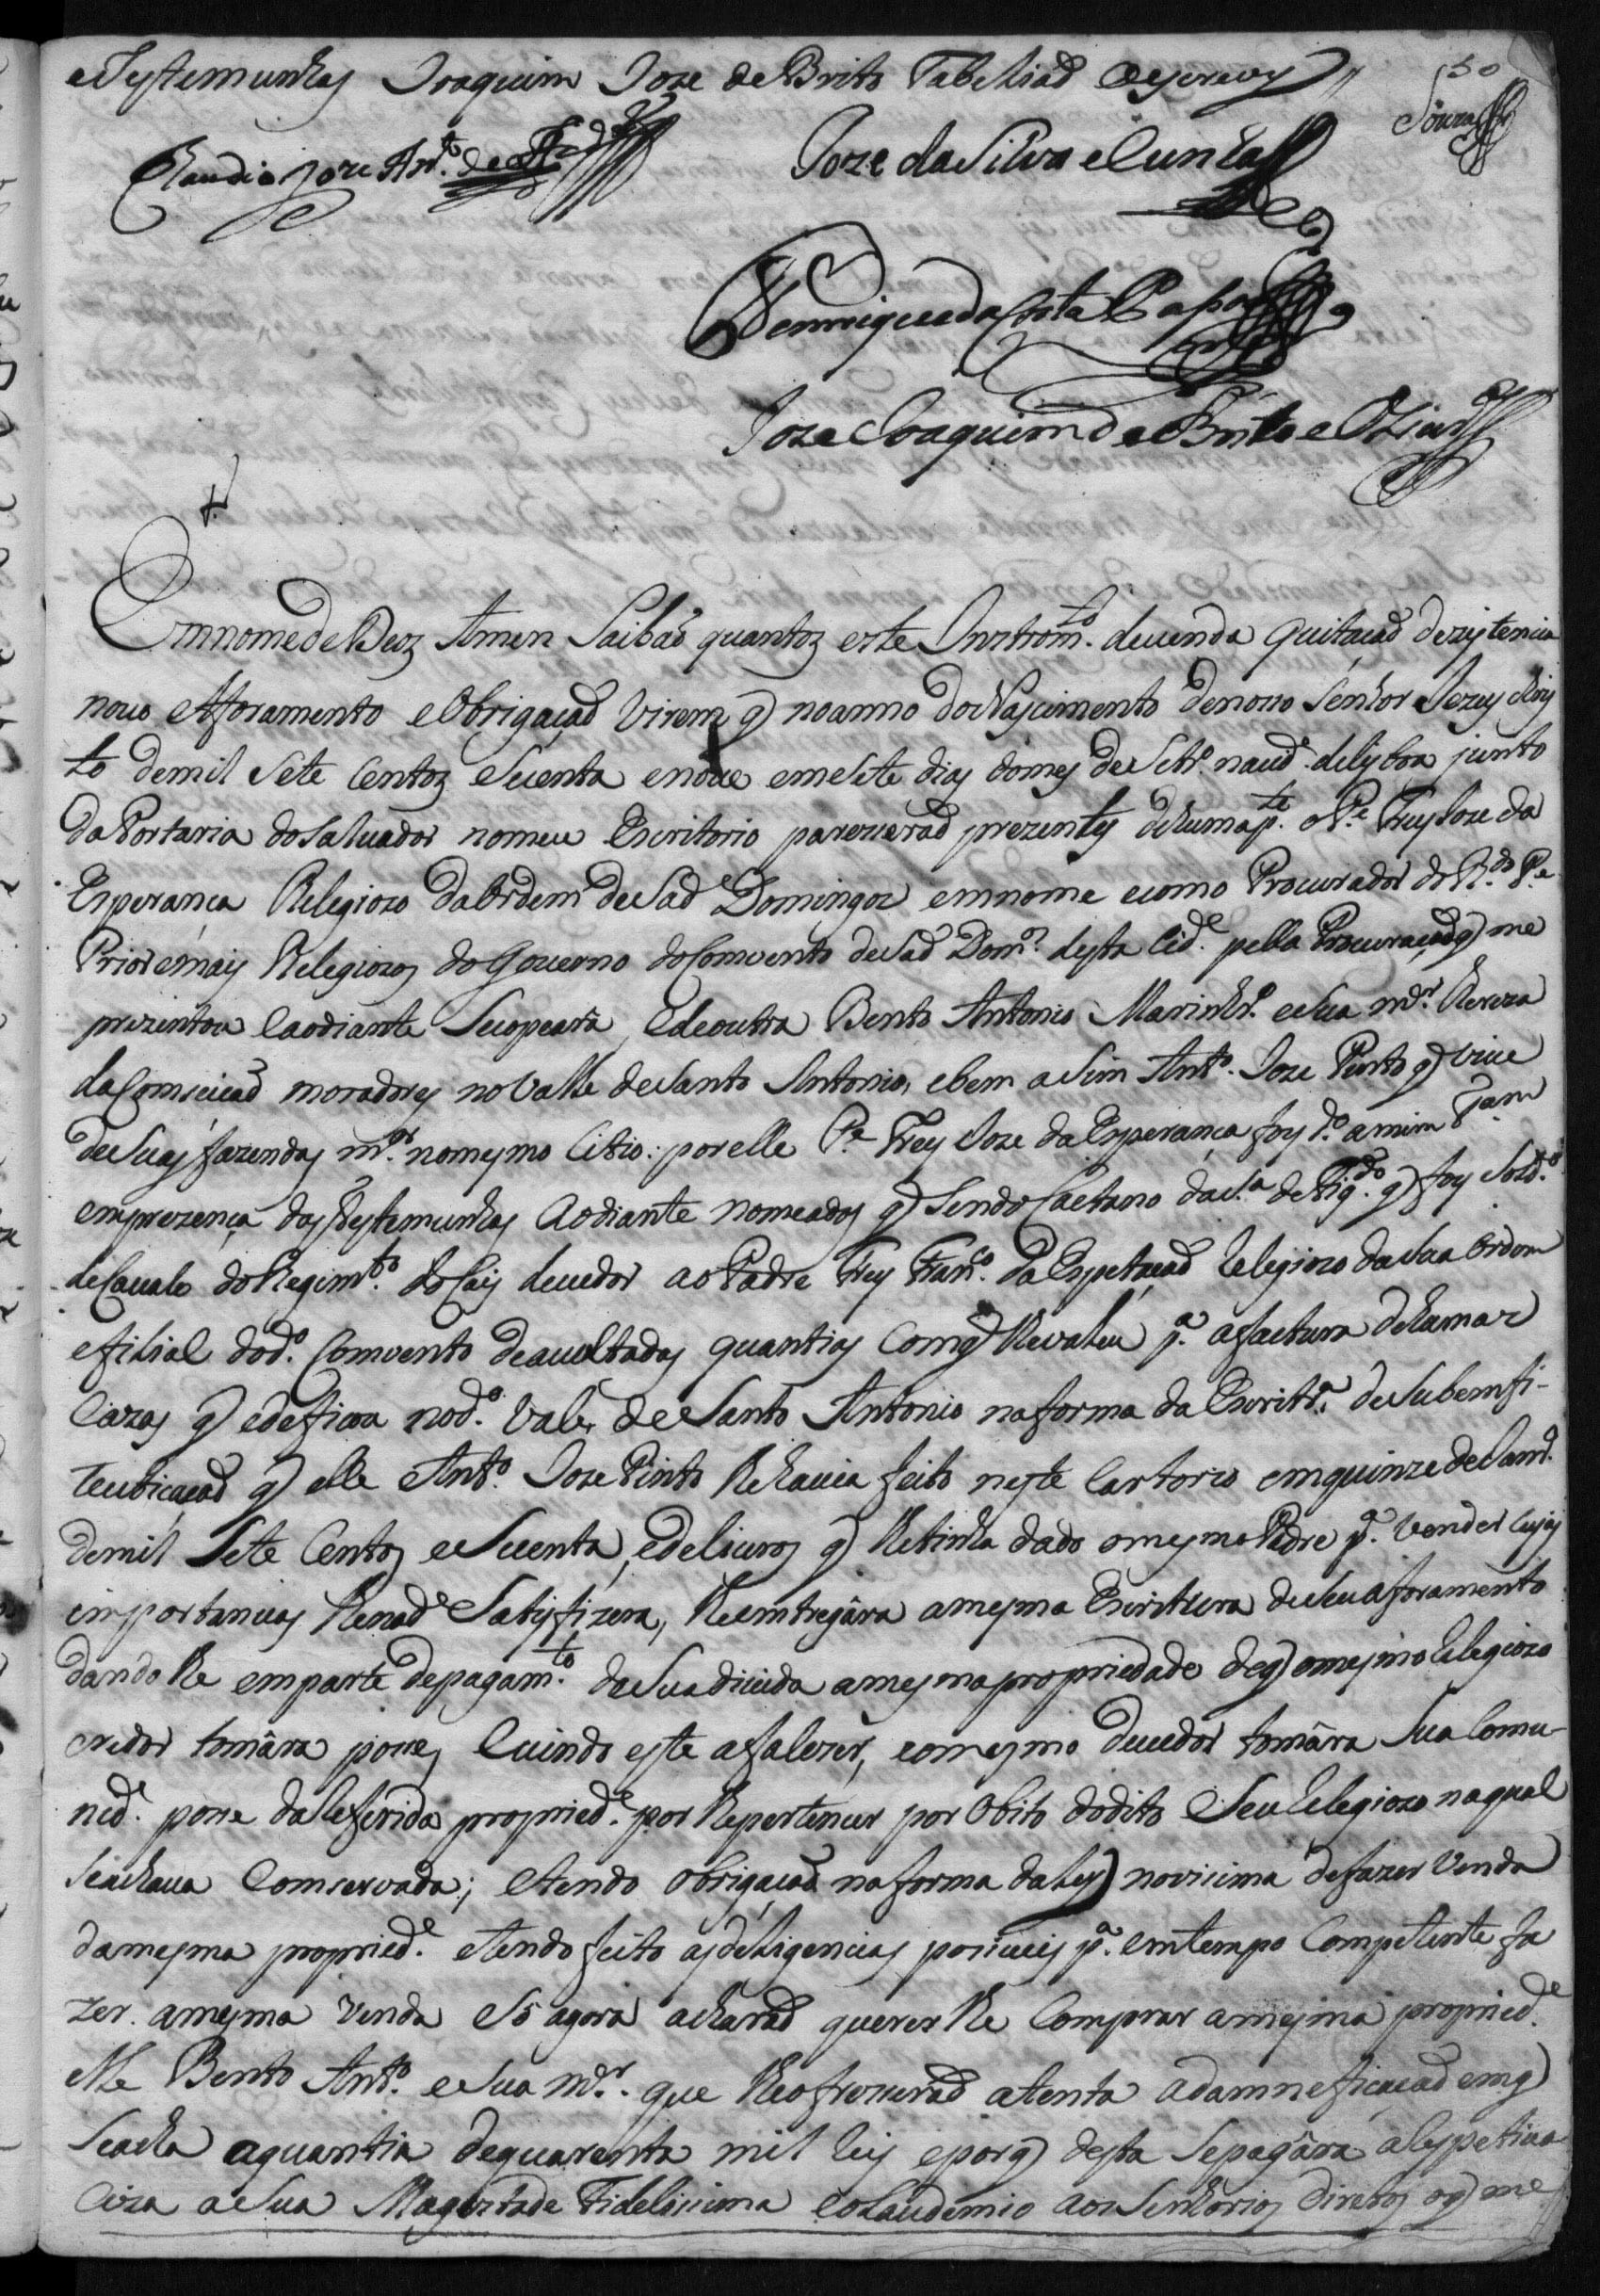 eTestemunhas Joaquim Joze deBrito Tabeliaõ oescrevy
50
Souza
Claudio Joze Ant.º de
Joze daSilva eCunha
Henrique da Costa Papa
Joze Joaquim deBrito e
Emnome deDeoz Amen Saibaõ quantoz este Instrom.to devenda quitaçaõ dezistencia
novo Aforamento eObrigaçaõ virem q) noanno doNascimento denoso Senhor Jezus chris
to demil Sete Centoz eSecenta enove emeSete dias domes de Setr.º nacid.e deLisboa junto
daPortaria doSalvador nomeu Escritorio parecerad prezentes dehuma p.te oP.e Frey Joze da
Esperança Relegiozo daOrdem deSaõ Domingoz emnome ecomo Procurador doR.do P.e
Prior emais Relegiozos doGoverno doConvento deSaõ Dom.os desta Cid.e pella Procuraçaõ q) me
prezentou eaodiante Secopeará, Edeoutra Bento Antonio Marinh.º eSua m.er Thereza
daConseicaõ moradores noValle deSanto Antonio, ebem aSim Ant.º Joze Pinto q) vive
deSuas fazendas m.or nomesmo Citio: porelle P.e Frey Joze daEsperança foy d.º amim Tam
emprezença dasTestemunhas Aodiante nomeados q) Sendo Caetano daS.a deFig.do q) foy Sold.º
deCavalo doRegim.to doCais devedor aoPadre Frey Fran.co daEspetaçaõ Relegiozo daSua Ordem
efilial dod.º Convento deavultadas quantias Comq) lhevaleu p.a afactura dehumaz
Cazas q) edeficou nod.º Vale deSanto Antonio naforma daEscritr.a deSubemfi-
teuticaçaõ q) elle Ant.º Joze Pinto lhehavia feito neste Cartorio emquinze deJan.ro
demil Sete Centos eSecenta, edelivros q) lhetinha dado omesmoPadre p.a vender cujas
importancias lhenaõ Satisfizera, lheentregára amesma Escritura deSeuaforamento
dandolhe emparte depagam.to daSuadivida amesmapropriedade deq) omesmo Relegiozo
credor tomâra posse, Evindo este afalecer, eomesmo devedor tomâra Sua Comu-
nid.e posse daReferida propried.e por lhepertencer por Obito dodito Seu Relegiozo naqual
Seachava Comservada; eTendo obrigaçaõ naforma daLey) novisima defazer Venda
damesma propried.e eTendo feito asdeligencias posiveis p.a emtempo Competente fa
zer amesma venda eSó agora acharaõ quererlhe Comprar amesma propried.e
elle Bento Ant.º eSua m.er que lheofreceraõ atenta adamneficaçaõ emq)
Seacha aquantia dequarenta mil reis eporq) desta Sepagára aRespetiva
Ciza aSua Magestade Fidelissima eoLaudemio aos Senhorios direitos oq) me